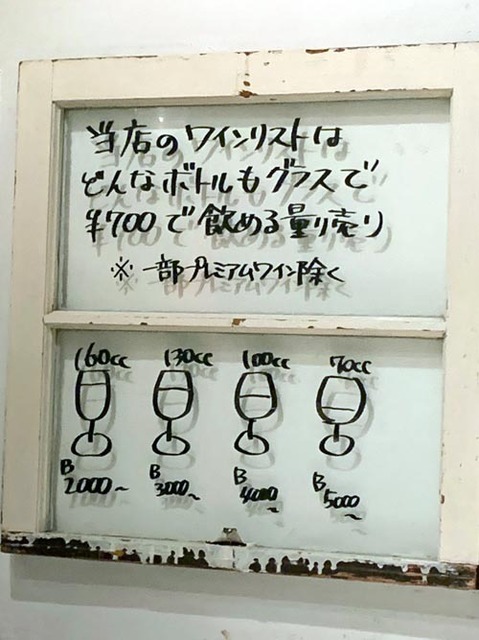 当店のワインリストは
どんなボトルもグラスで
¥700で飲める量り売り
※一部プレミアムワイン除く
160cc 130cc 100cc 70cc
B B B B
2000~ 3000~ 4000~ 5000~